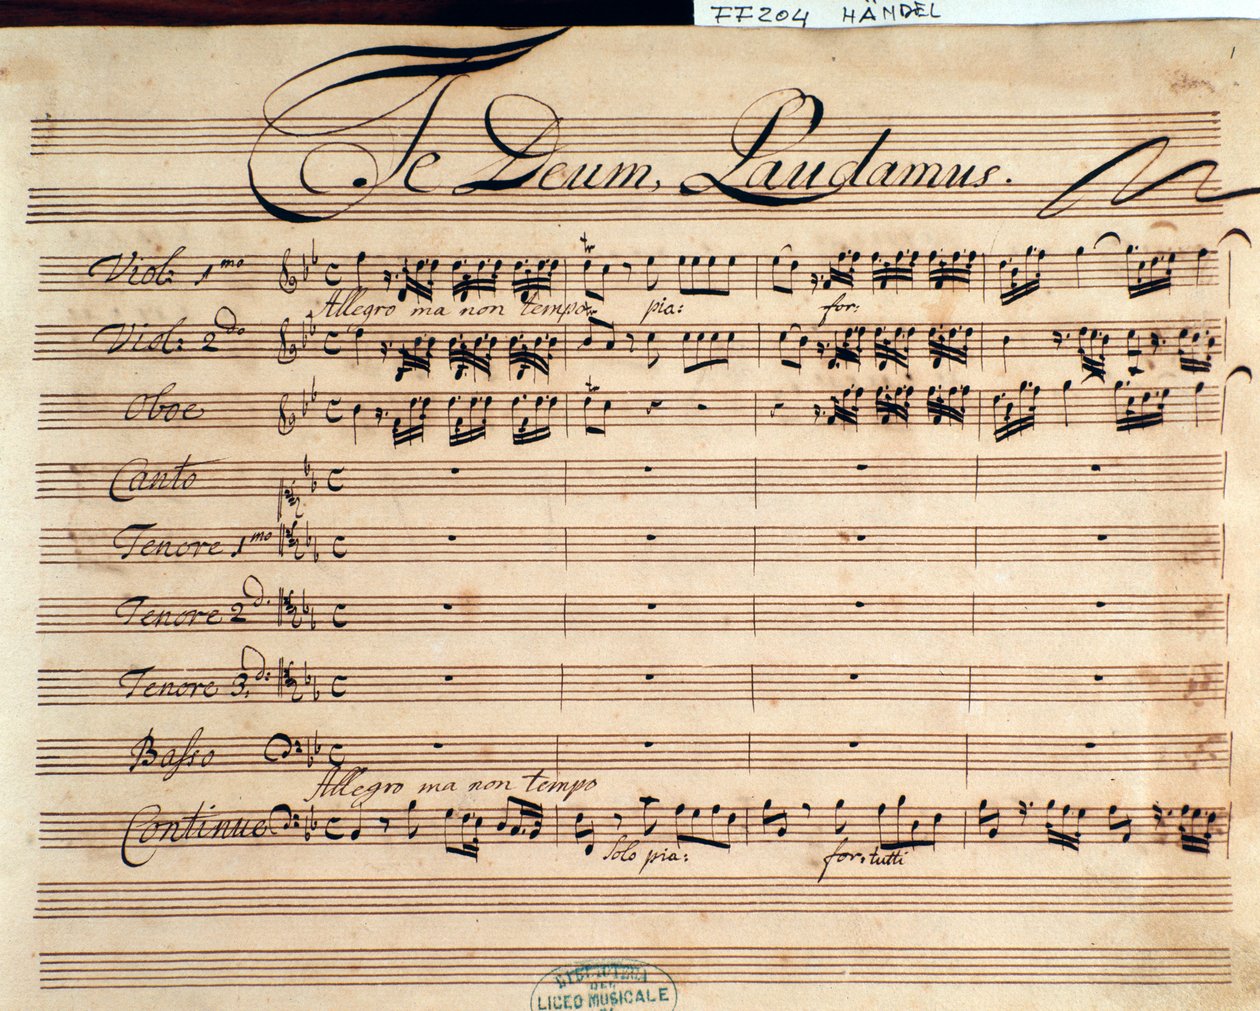 FF204 HÄNDEL
1
Te Deum, Laudamus.
Viol: 1mo
Allegro ma non tempo pia: for:
Viol: 2do
Oboe
Canto
Tenore 1mo
Tenore 2d.
Tenore 3d:
Basso
Allegro ma non tempo
Continue
Solo pia: for: tutti
BIBLIOTECA
DEL
LICEO MUSICALE